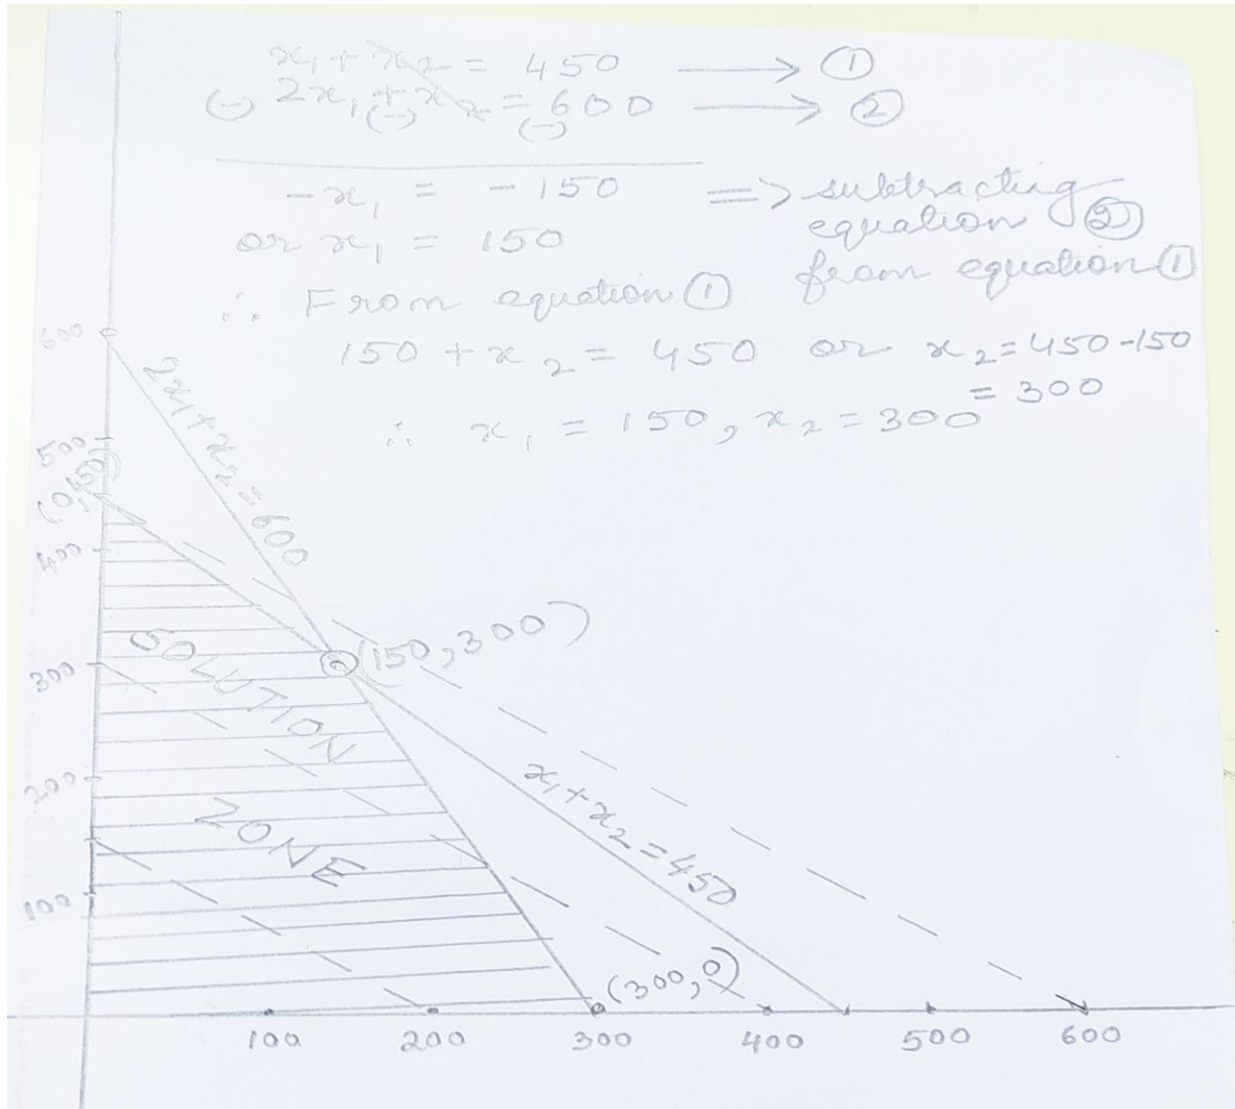 x₁ + x₂ = 450 ⟶ ①
(-) 2x₁ + x₂ = 600 ⟶ ②
(-) (-)
-x₁ = -150 => subtracting
equation ②
from equation ①
or x₁ = 150
∴ From equation ①
150 + x₂ = 450 or x₂ = 450 - 150
= 300
∴ x₁ = 150, x₂ = 300
600
2x₁ + x₂ = 600
500
(0,450)
400
(150,300)
300
SOLUTION
ZONE
200
x₁ + x₂ = 450
100
(300,0)
100 200 300 400 500 600